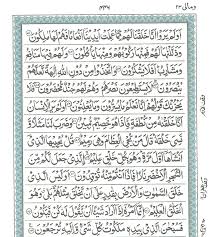 ومالى ٢٣
اَوَلَمْ يَرَوْا اَنَّا خَلَقْنَا لَهُمْ مِّمَّا عَمِلَتْ اَيْدِيْنَاۤ اَنْعَامًا فَهُمْ لَهَا مٰلِكُوْنَ
وَذَلَّلْنٰهَا لَهُمْ فَمِنْهَا رَكُوْبُهُمْ وَمِنْهَا يَاْكُلُوْنَ وَلَهُمْ فِيْهَا مَنَافِعُ
وَمَشَارِبُ اَفَلَا يَشْكُرُوْنَ وَاتَّخَذُوْا مِنْ دُوْنِ اللّٰهِ اٰلِهَةً لَّعَلَّهُمْ
يُنْصَرُوْنَ لَا يَسْتَطِيْعُوْنَ نَصْرَهُمْ وَهُمْ لَهُمْ جُنْدٌ مُّحْضَرُوْنَ فَلَا
يَحْزُنْكَ قَوْلُهُمْ اِنَّا نَعْلَمُ مَا يُسِرُّوْنَ وَمَا يُعْلِنُوْنَ اَوَلَمْ يَرَ الْاِنْسَانُ
اَنَّا خَلَقْنٰهُ مِنْ نُّطْفَةٍ فَاِذَا هُوَ خَصِيْمٌ مُّبِيْنٌ وَضَرَبَ لَنَا مَثَلًا وَّ
نَسِيَ خَلْقَهٗ قَالَ مَنْ يُّحْيِ الْعِظَامَ وَهِيَ رَمِيْمٌ قُلْ يُحْيِيْهَا الَّذِيْۤ
اَنْشَاَهَاۤ اَوَّلَ مَرَّةٍ وَهُوَ بِكُلِّ خَلْقٍ عَلِيْمُ الَّذِيْ جَعَلَ لَكُمْ مِّنَ
الشَّجَرِ الْاَخْضَرِ نَارًا فَاِذَاۤ اَنْتُمْ مِّنْهُ تُوْقِدُوْنَ اَوَلَيْسَ الَّذِيْ
خَلَقَ السَّمٰوٰتِ وَالْاَرْضَ بِقٰدِرٍ عَلٰۤى اَنْ يَّخْلُقَ مِثْلَهُمْ بَلٰى وَهُوَ
الْخَلّٰقُ الْعَلِيْمُ اِنَّمَاۤ اَمْرُهٗۤ اِذَاۤ اَرَادَ شَيْـًٔا اَنْ يَّقُوْلَ لَهٗ كُنْ فَيَكُوْنُ
فَسُبْحٰنَ الَّذِيْ بِيَدِهٖ مَلَكُوْتُ كُلِّ شَيْءٍ وَّاِلَيْهِ تُرْجَعُوْنَ